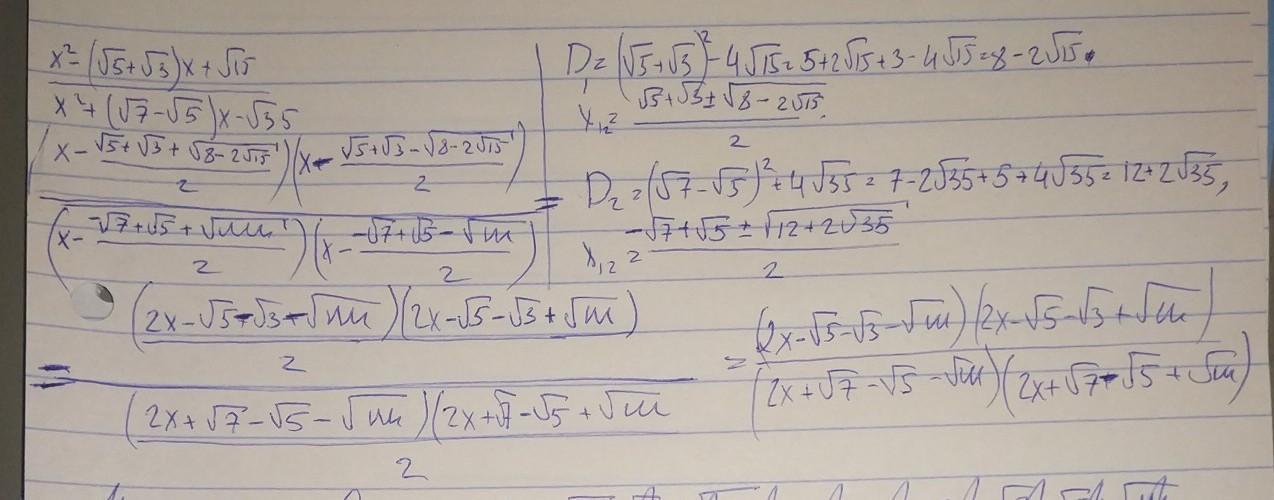 x² - (√5+√3)x + √15
x² + (√7 - √5)x - √35
(x - (√5+√3+√(8-2√15))/2)(x - (√5+√3-√(8-2√15))/2)
(x - (-√7+√5+√m)/2)(x - (-√7+√5-√m)/2) =
D₁ = (√5+√3)² - 4√15 = 5+2√15+3-4√15 = 8-2√15.
x₁₂ = (√5+√3±√(8-2√15))/2
D₂ = (√7-√5)² + 4√35 = 7-2√35+5+4√35 = 12+2√35,
x₁₂ = (-√7+√5±√(12+2√35))/2
= (2x-√5-√3-√m)(2x-√5-√3+√m)
2
(2x+√7-√5-√m)(2x+√7-√5+√m
2
= (2x-√5-√3-√m)(2x-√5-√3+√m)
(2x+√7-√5-√m)(2x+√7-√5+√m)